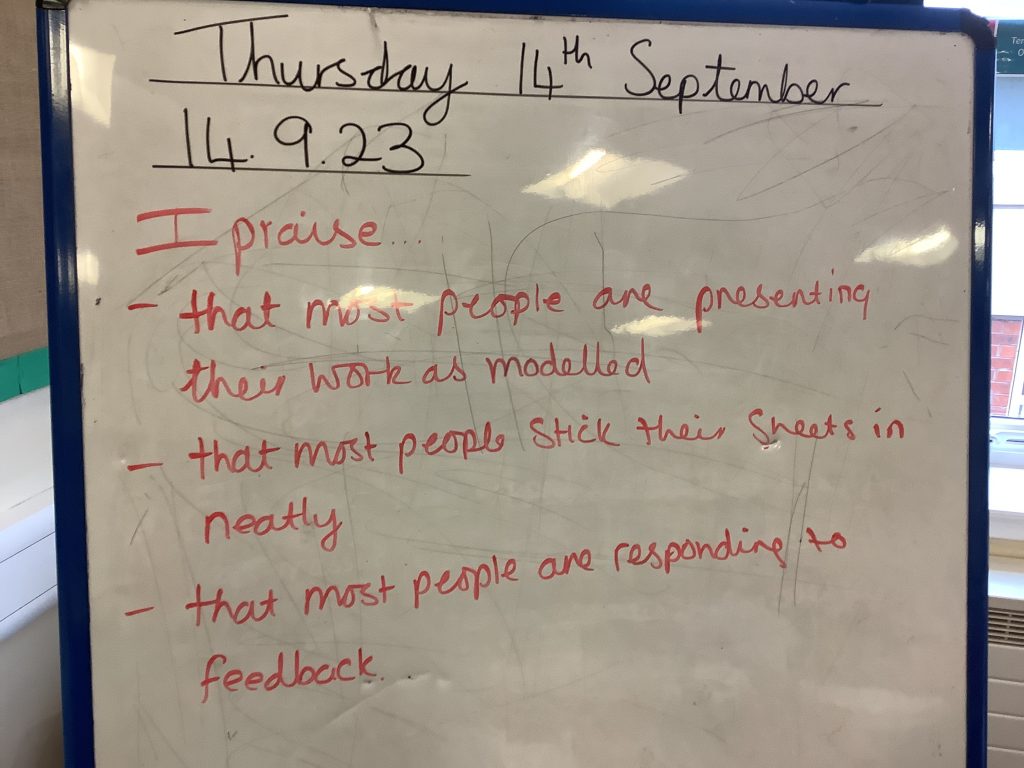 Thursday 14th September
14.9.23
I praise...
- that most people are presenting
their work as modelled
- that most people stick their sheets in
neatly
- that most people are responding to
feedback.